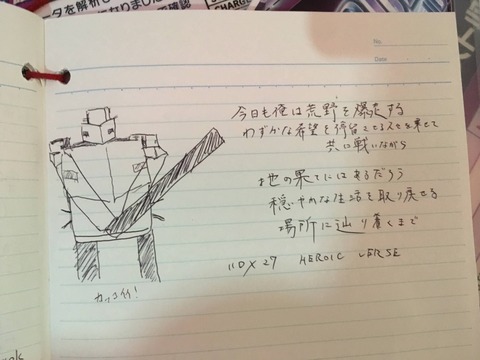 ータを解析し
になりました
CHARGE
No.
Date
今日も俺は荒野を爆走する
わずかな希望を
共に戦いながら
地の果てにはあるだろう
穏やかな生活を取り戻せる
場所に辿り着くまで
HEROIC VERSE
カッコイイ!